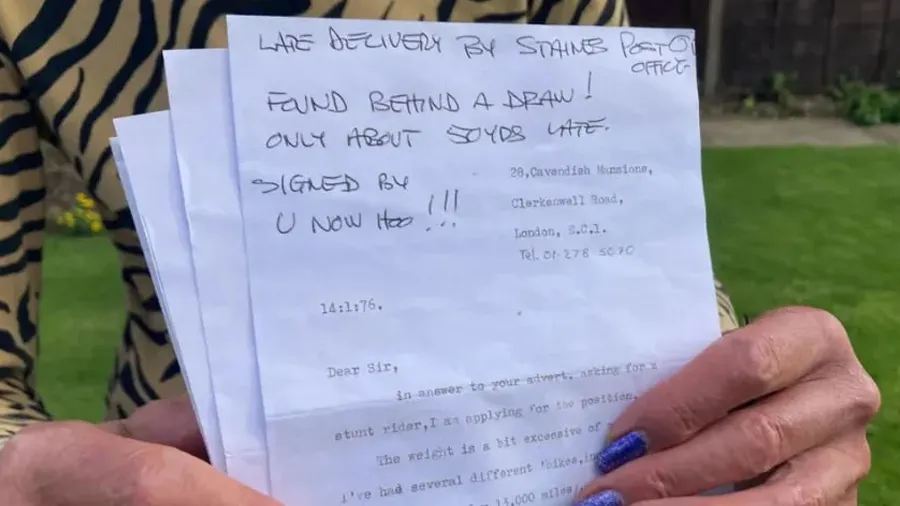 LATE DELIVERY BY STAINES POST
OFFICE
FOUND BEHIND A DRAW!
ONLY ABOUT 50YDS LATE.
SIGNED BY
U NOW HOO !!!
28,Cavendish Mansions,
Clerkenwell Road,
London, E.C.1.
Tel. 01-278 5070
14:1:76.
Dear Sir,
in answer to your advert. asking for a
stunt rider,I am applying for the position.
The weight is a bit excessive of
i've had several different 'bikes,
13,000 miles